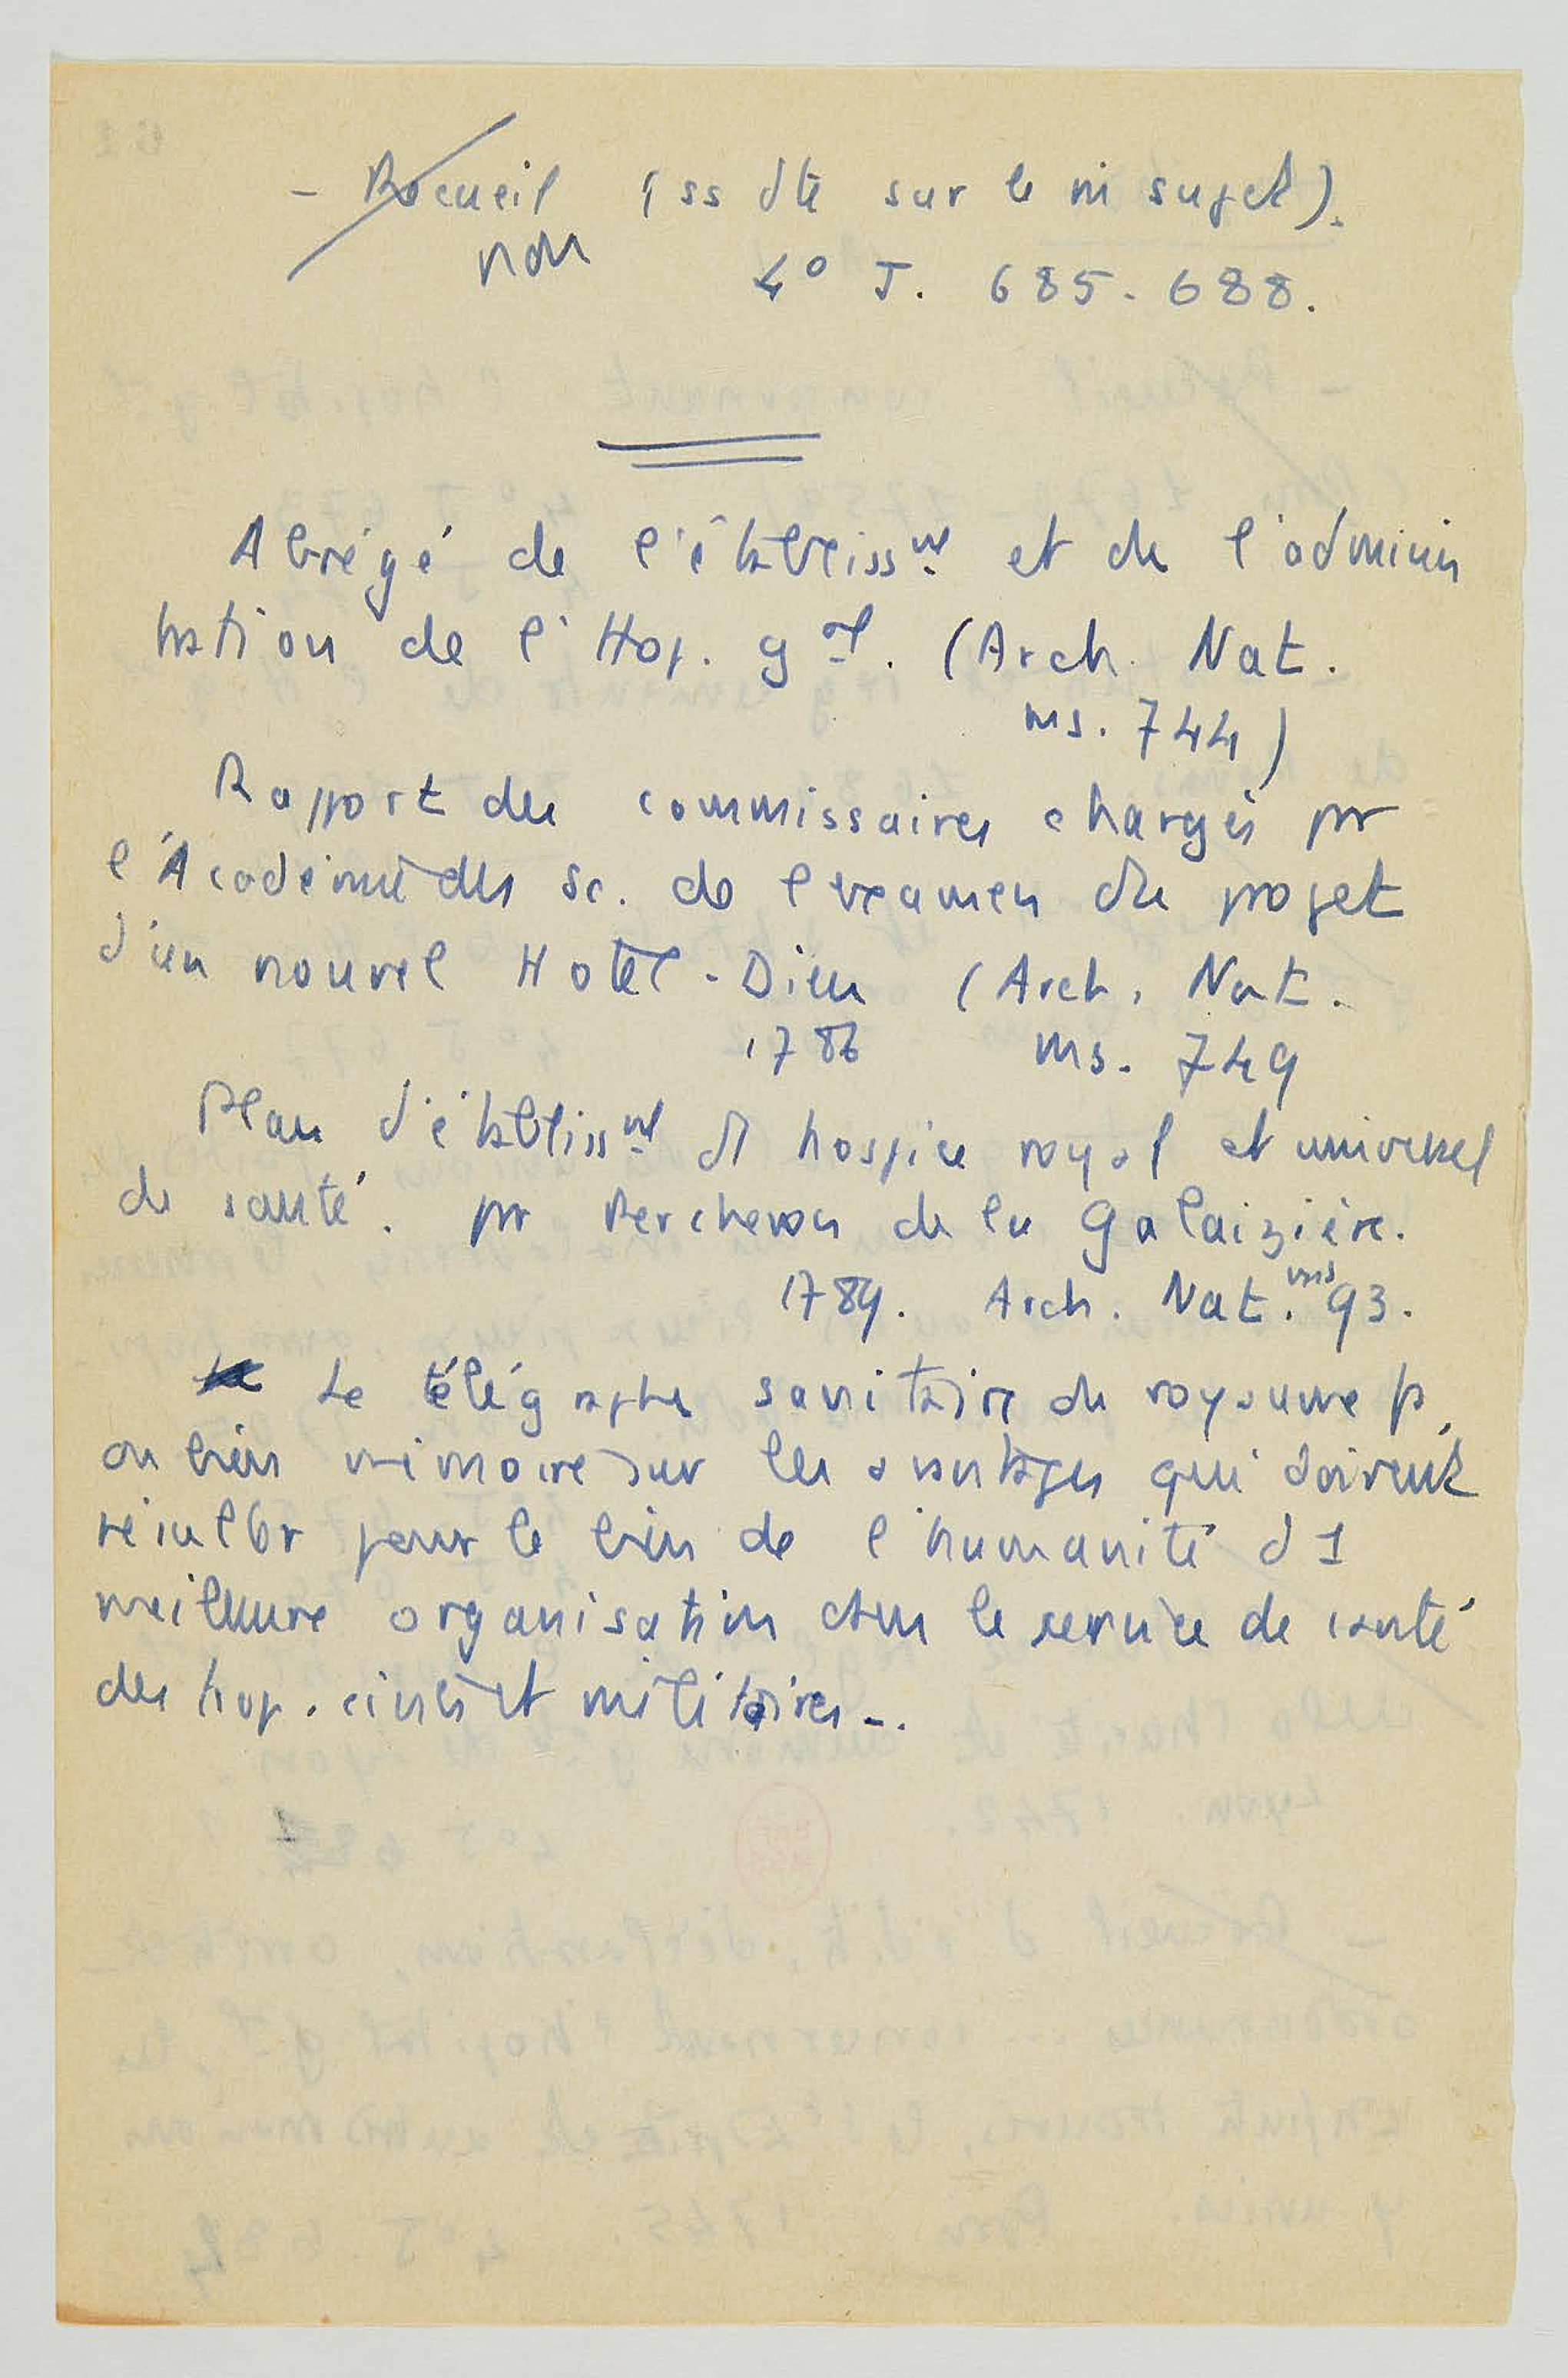 - Recueil (ss dte sur le m sujet).
non 4° J. 685-688.
Abrégé de l'établissmt et de l'adminis
tration de l'Hop. gal. (Arch. Nat.
ms. 744)
Rapport des commissaires chargés pr
l'Académie des sc. de l'examen du projet
d'un nouvel Hotel-Dieu (Arch. Nat.
1786 ms. 749
Plan d'établissmt d1 hospice royal et universel
de santé. pr de la Galaizière.
1789. Arch. Nat. ms 93.
Le télégraphe sanitaire du royaume
ou bien mémoire sur les avantages qui doivent
résulter pour le bien de l'humanité d1
meilleure organisation dans le service de santé
des hop. civils et militaires -.